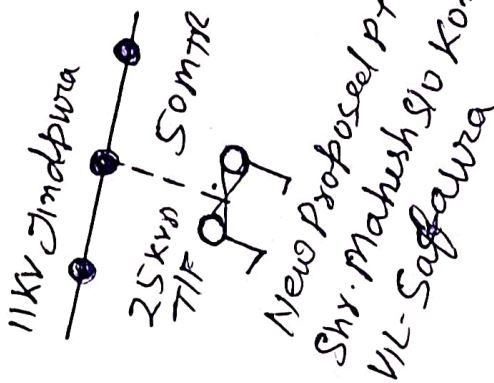 11KV Jindpura
50MTR
25KVA
T/F
New Proposed PT
Shr. Mahesh S/O Ko
Vil- Safawra